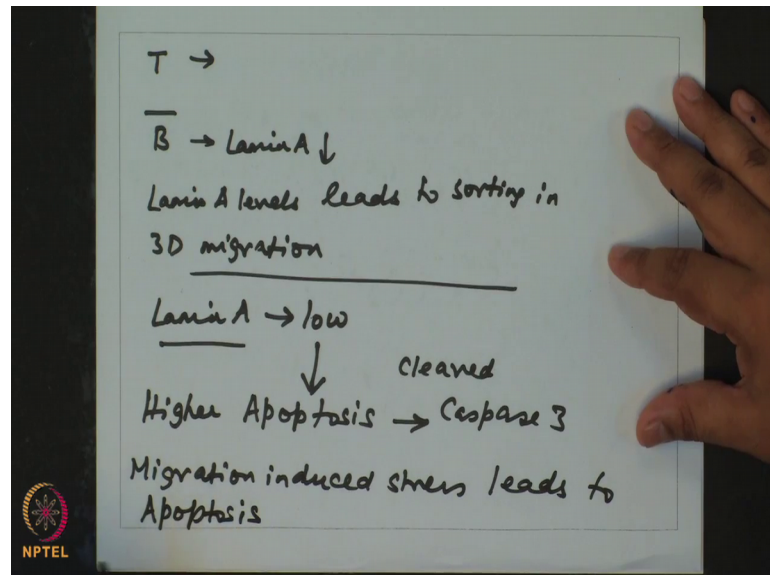 T →
B → Lamin A ↓
Lamin A levels leads to sorting in
3D migration
Lamin A → low
↓
cleaved
Higher Apoptosis → Caspase 3
Migration induced stress leads to
Apoptosis
NPTEL